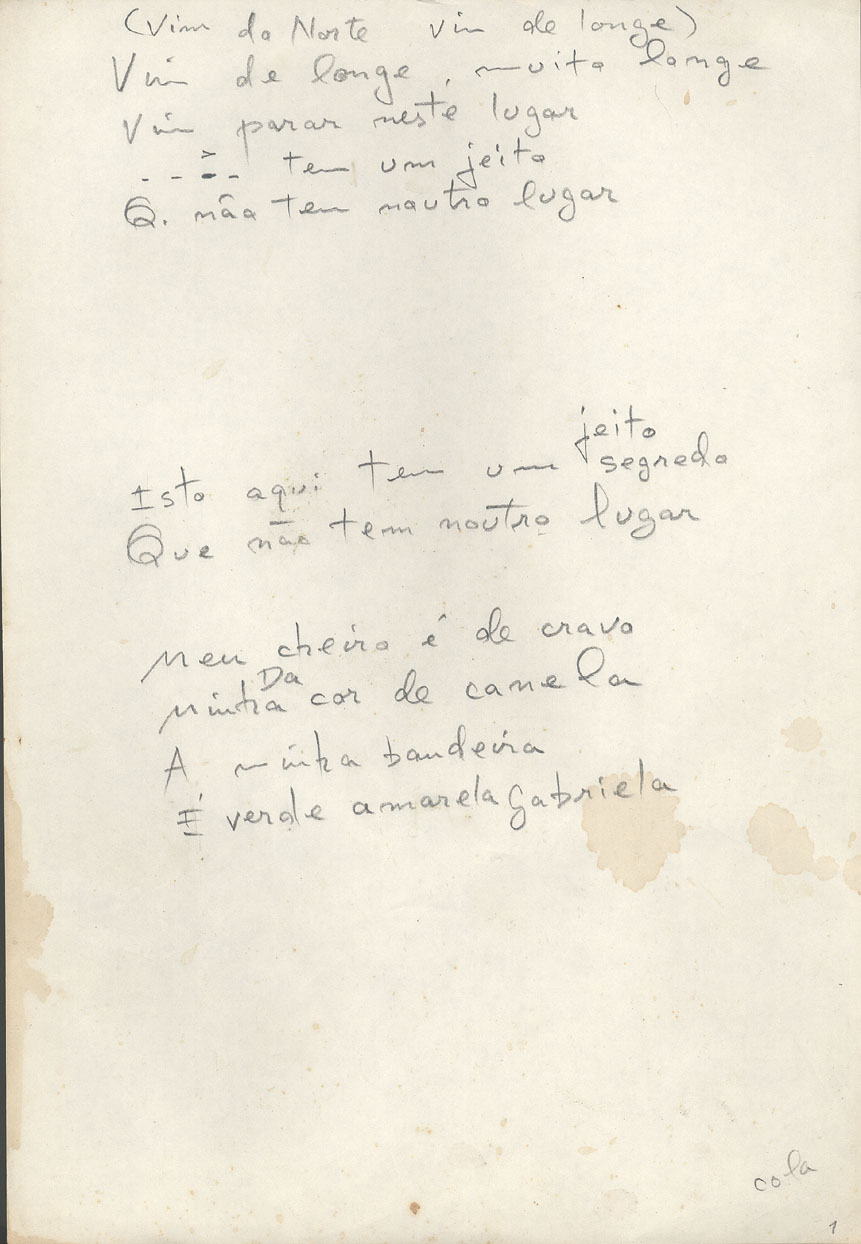 (Vim do Norte vim de longe)
Vim de longe, muito longe
Vim parar neste lugar
- - - - tem um jeito
Q. não tem noutro lugar
jeito
Isto aqui tem um segredo
Que não tem noutro lugar
Meu cheiro é de cravo
Da
Minha cor de canela
A minha bandeira
É verde amarela Gabriela
cola
1